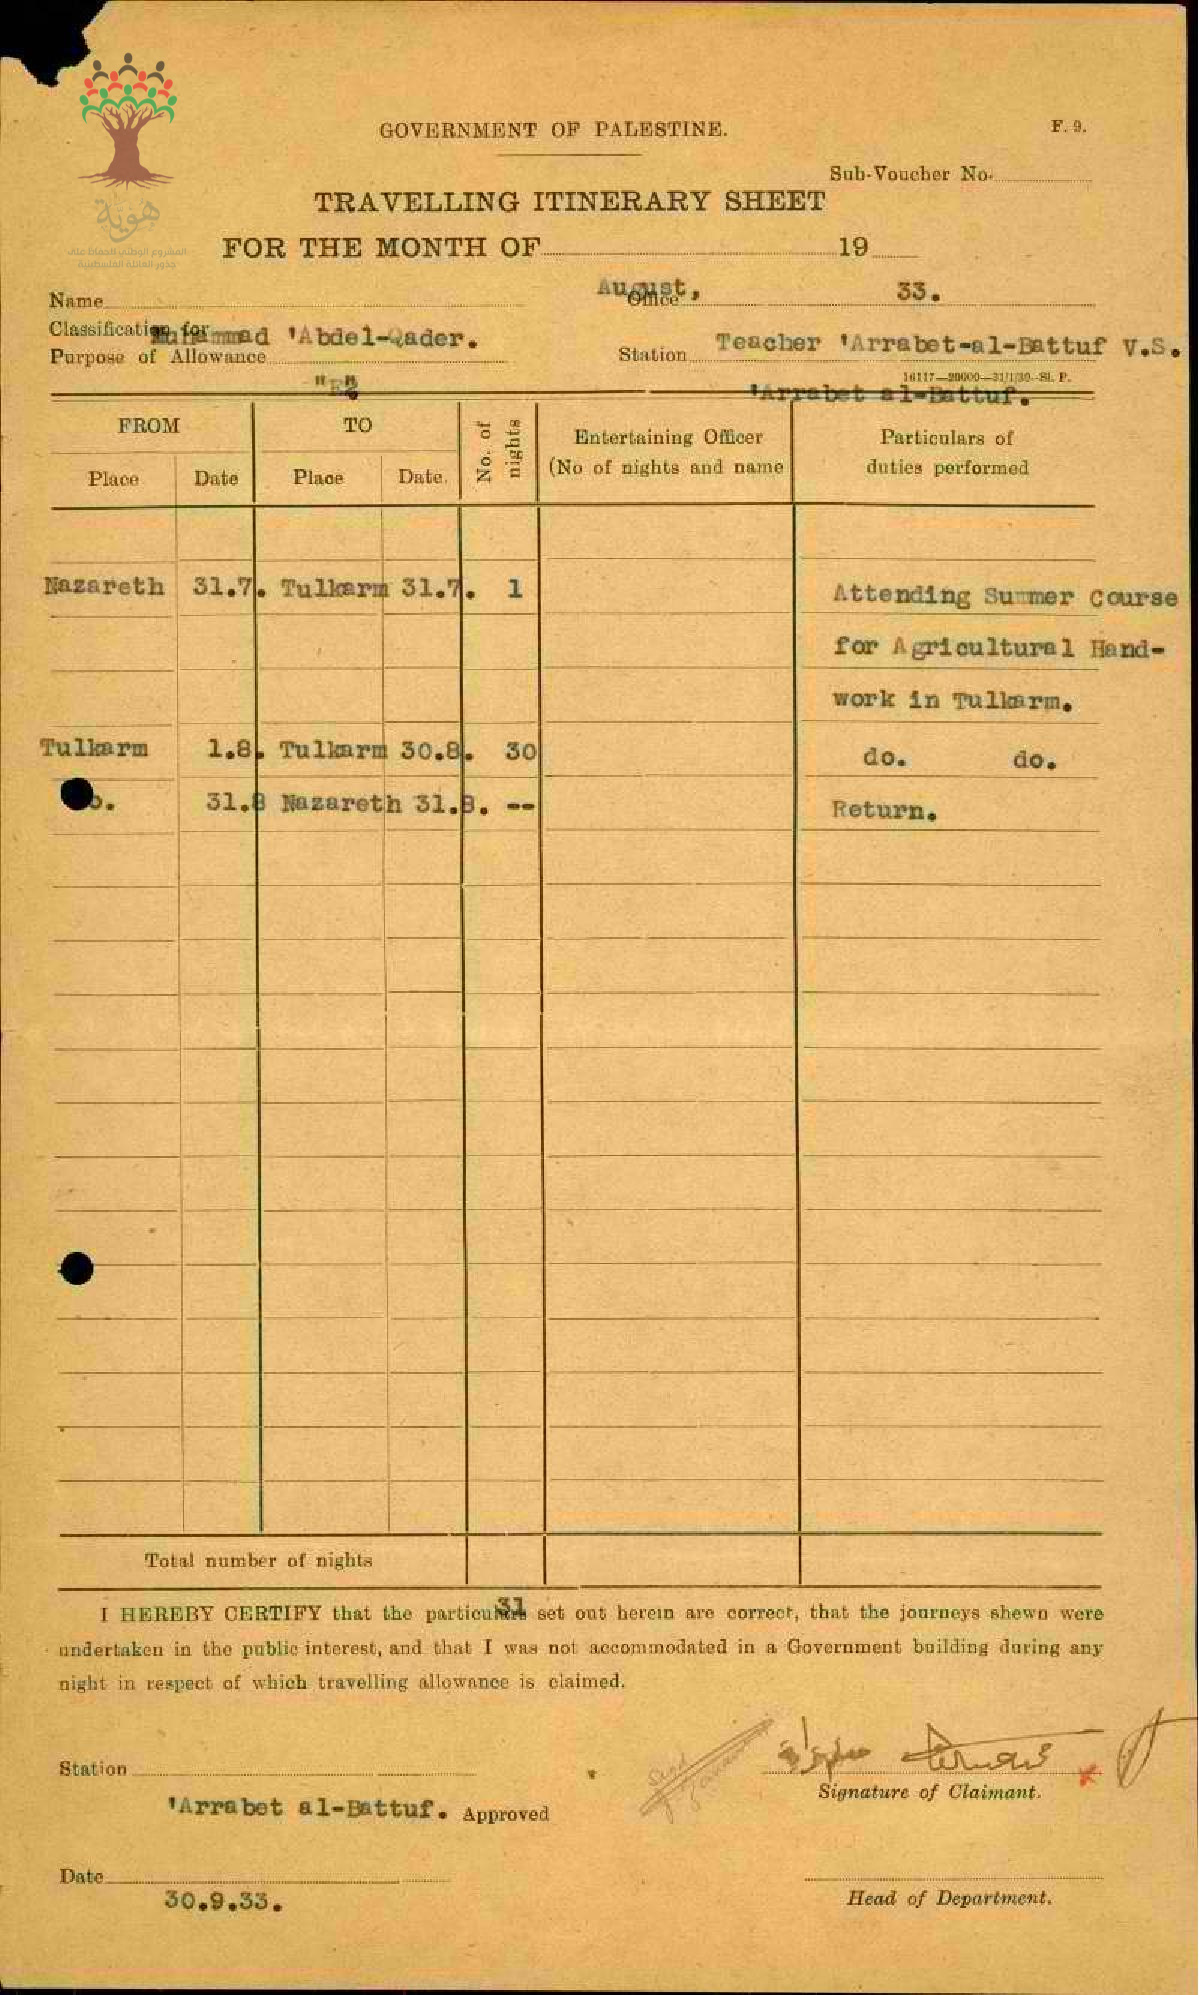 هوية
المشروع الوطني للحفاظ على
جذور العائلة الفلسطينية
GOVERNMENT OF PALESTINE.
F. 9.
Sub-Voucher No.
TRAVELLING ITINERARY SHEET
FOR THE MONTH OF 19
August, 33.
Name Office
Classification for
Muhammad 'Abdel-Qader.
Purpose of Allowance
Station Teacher 'Arrabet-al-Battuf V.S.
16117—20000—31/1/30—Sl. P.
"E"
'Arrabet al-Battuf.
FROM TO No. of nights Entertaining Officer Particulars of
Place Date Place Date. (No of nights and name duties performed
Nazareth 31.7. Tulkarm 31.7. 1 Attending Summer Course
for Agricultural Hand-
work in Tulkarm.
Tulkarm 1.8. Tulkarm 30.8. 30 do. do.
31.8 Nazareth 31.8. -- Return.
Total number of nights
31
I HEREBY CERTIFY that the particulars set out herein are correct, that the journeys shewn were
undertaken in the public interest, and that I was not accommodated in a Government building during any
night in respect of which travelling allowance is claimed.
Station
Signature of Claimant.
'Arrabet al-Battuf. Approved
Date
30.9.33.
Head of Department.